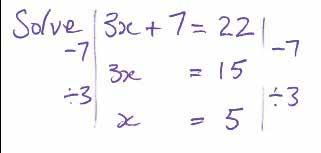 Solve | 3x + 7 = 22 |
-7 | 3x = 15 | -7
÷3 | x = 5 | ÷3